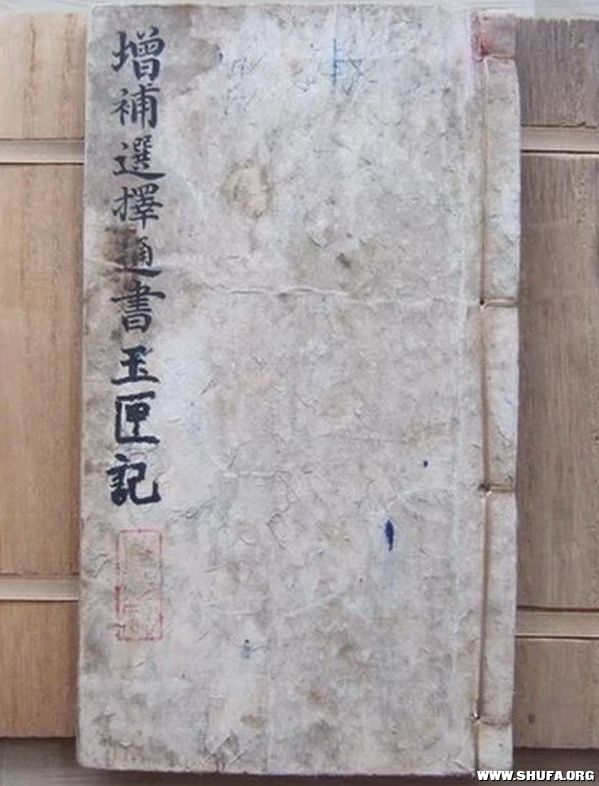 增補選擇通書玉匣記
WWW.SHUFA.ORG